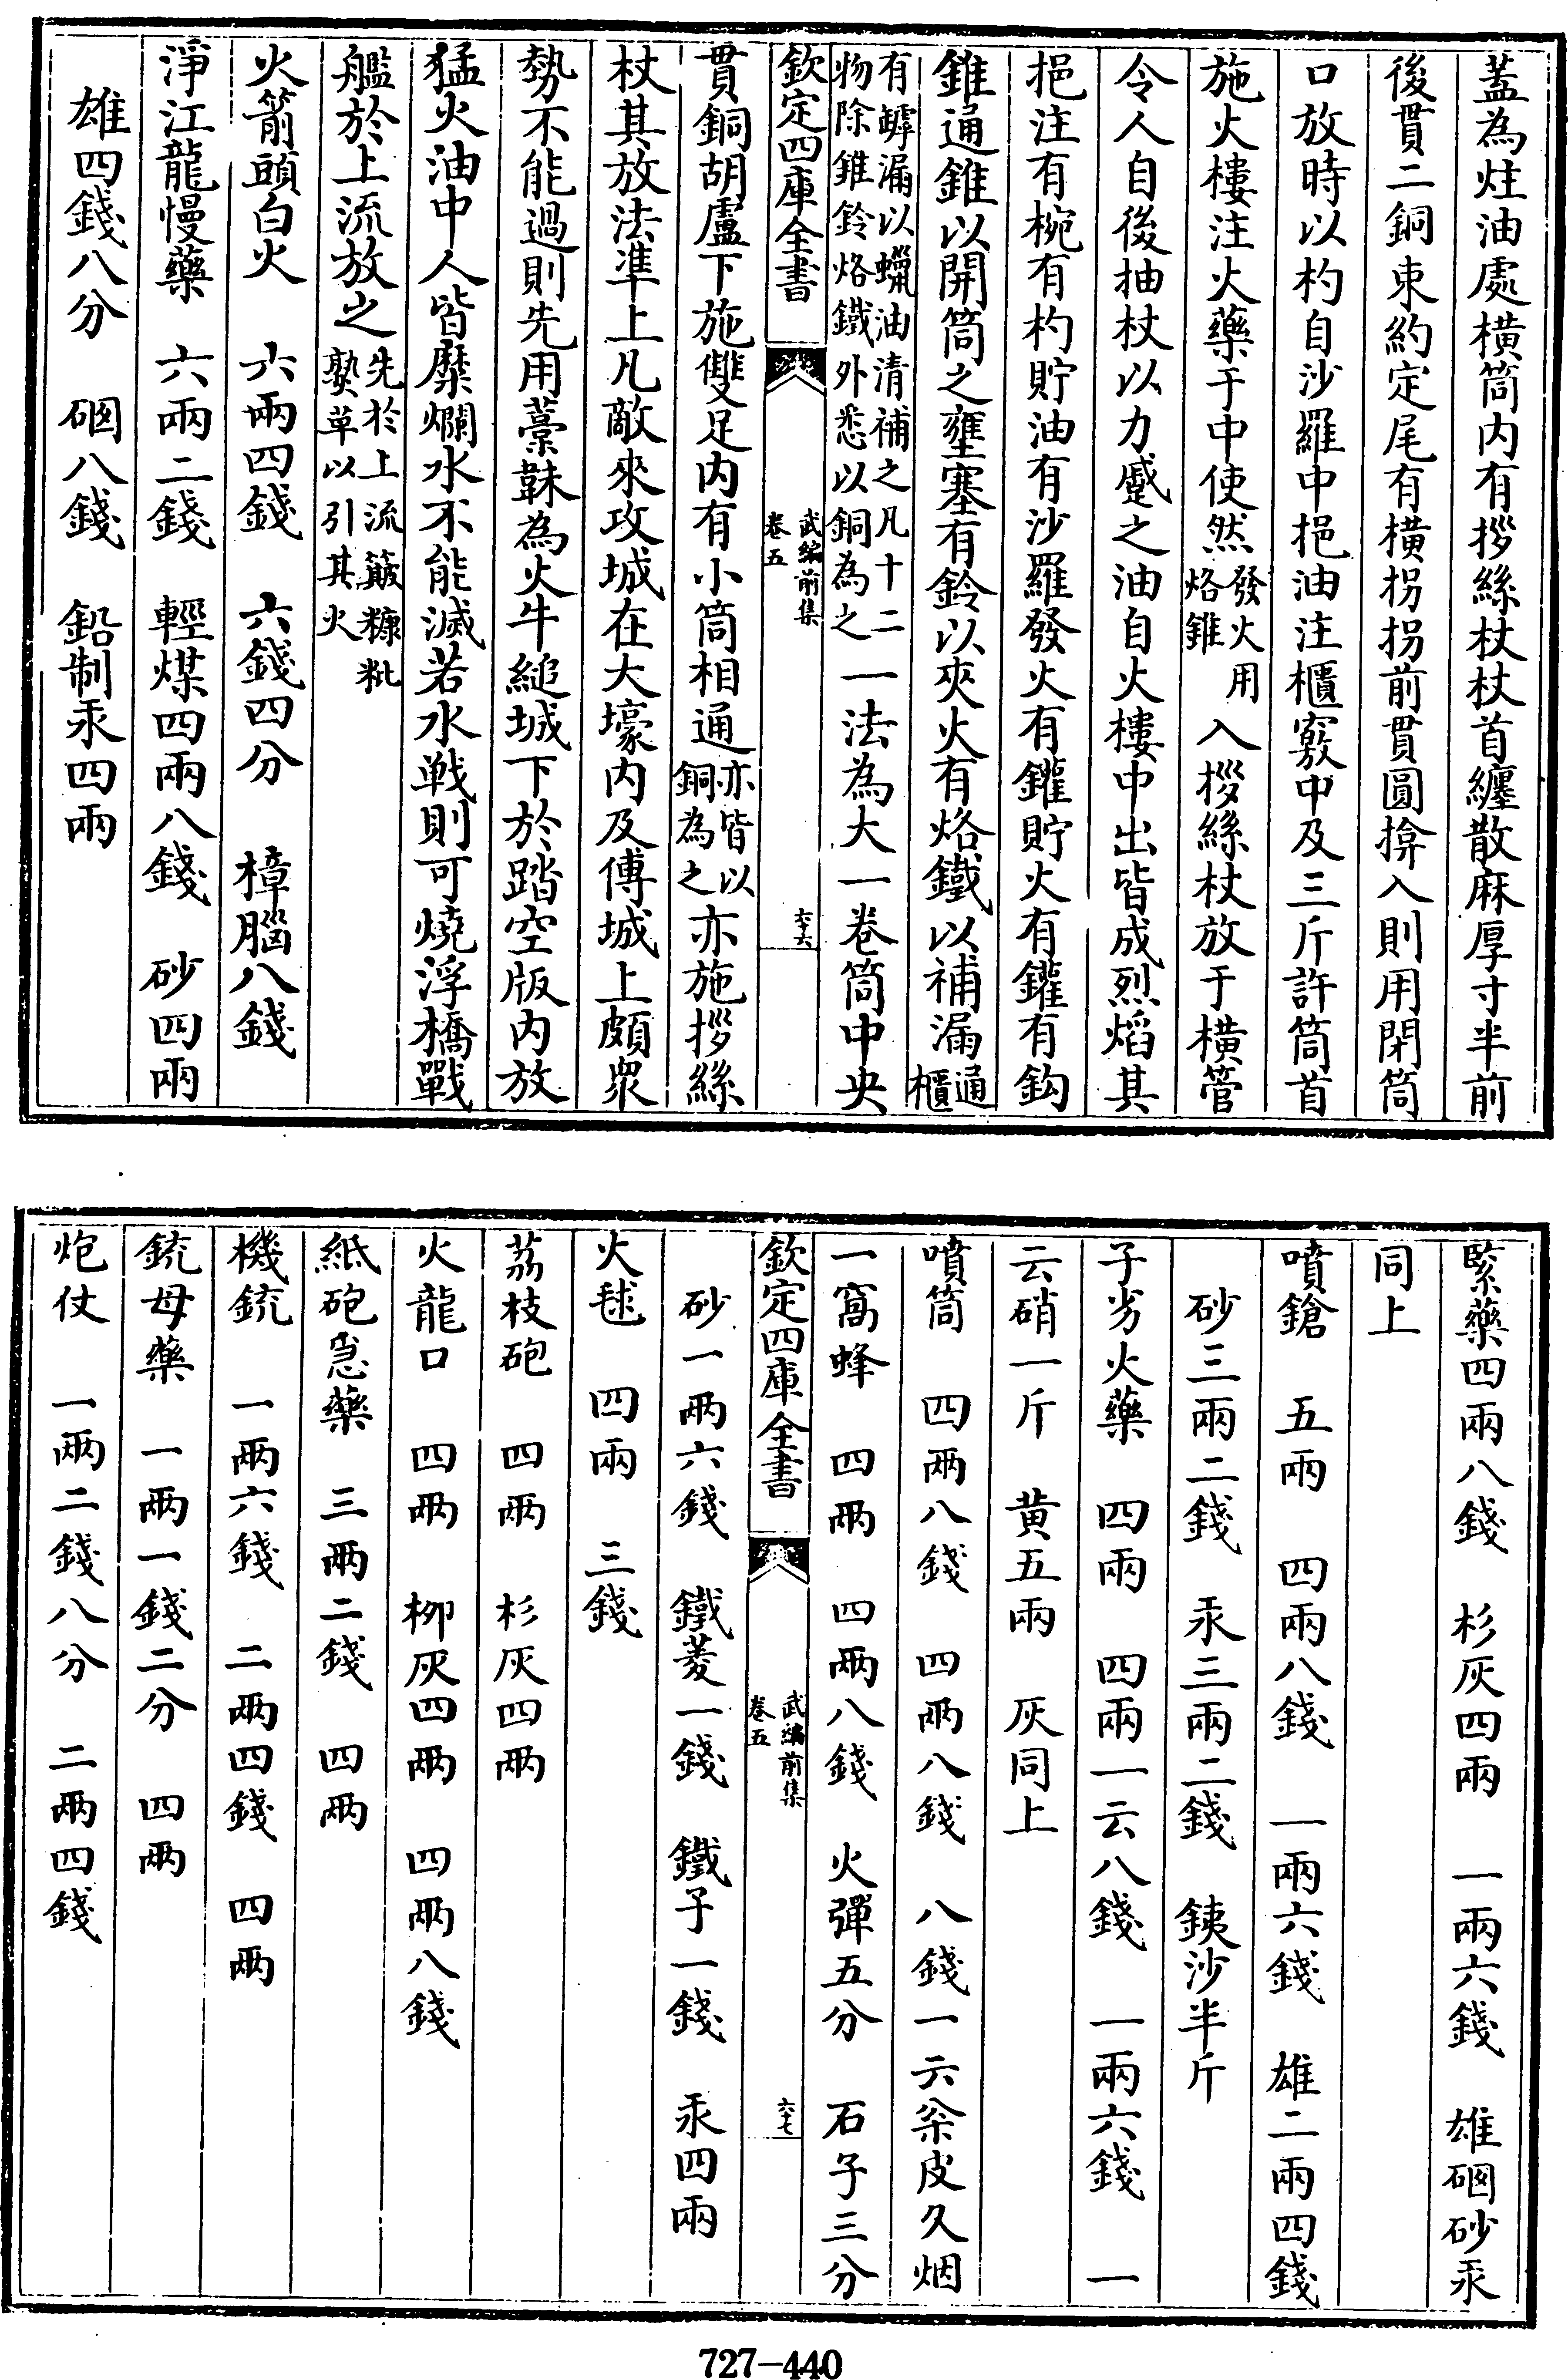 蓋為炷油處橫筒内有拶絲杖杖首纏散麻厚寸半前
後貫二銅束約定尾有橫拐拐前貫圓揜入則用閉筒
口放時以杓自沙羅中挹油注櫃竅中及三斤許筒首
施火樓注火藥于中使然發火用烙錐入拶絲杖放于橫管
令人自後抽杖以力蹙之油自火樓中出皆成烈焰其
挹注有椀有杓貯油有沙羅發火有鑵貯火有鑵有鈎
錐通錐以開筒之壅塞有鈴以夾火有烙鐵以補漏通櫃
有罅漏以蠟油清補之凡十二物除錐鈴烙鐵外悉以銅為之一法為大一卷筒中央
欽定四庫全書 武編前集卷五 六十六
貫銅胡盧下施雙足内有小筒相通亦皆以銅為之亦施拶絲
杖其放法準上凡敵來攻城在大壕内及傅城上頗衆
勢不能過則先用藁韎為火牛縋城下於踏空版内放
猛火油中人皆糜爛水不能滅若水戦則可燒浮橋戰
艦於上流放之先於上流簸糠粃𤎅草以引其火
火箭頭白火 六兩四錢 六錢四分 樟腦八錢
淨江龍慢藥 六兩二錢 輕煤四兩八錢 砂四兩
雄四錢八分 硇八錢 鉛制汞四兩
緊藥四兩八錢 杉灰四兩 一兩六錢 雄硇砂汞
同上
噴鎗 五兩 四兩八錢 一兩六錢 雄二兩四錢
砂三兩二錢 汞三兩二錢 銕沙半斤
子劣火藥 四兩 四兩一云八錢 一兩六錢 一
云硝一斤 黄五兩 灰同上
噴筒 四兩八錢 四兩八錢 八錢一六桬皮久烟
一窩蜂 四兩 四兩八錢 火彈五分 石子三分
欽定四庫全書 武編前集卷五 六十七
砂一兩六錢 鐵菱一錢 鐵子一錢 汞四兩
火毬 四兩 三錢
荔枝砲 四兩 杉灰四兩
火龍口 四兩 柳灰四兩 四兩八錢
紙砲急藥 三兩二錢 四兩
機銃 一兩六錢 二兩四錢 四兩
銃母藥 一兩一錢二分 四兩
炮仗 一兩二錢八分 二兩四錢
727-440